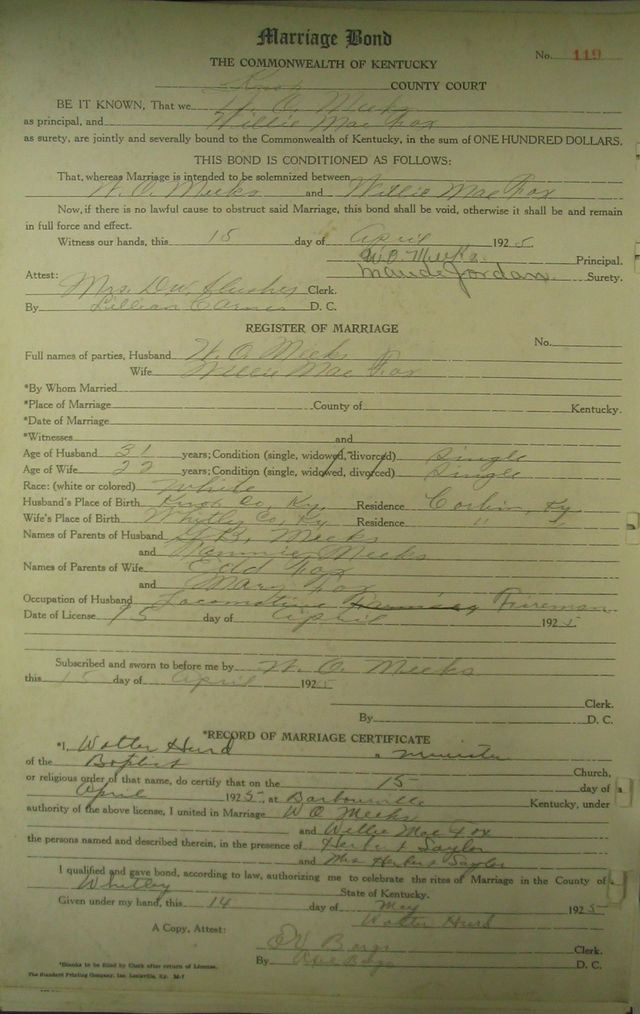 Marriage Bond
No. 119
THE COMMONWEALTH OF KENTUCKY
Knox COUNTY COURT
BE IT KNOWN, That we W. O. Meeks
as principal, and Willie Mae Fox
as surety, are jointly and severally bound to the Commonwealth of Kentucky, in the sum of ONE HUNDRED DOLLARS.
THIS BOND IS CONDITIONED AS FOLLOWS:
That, whereas Marriage is intended to be solemnized between
W. O. Meeks and Willie Mae Fox
Now, if there is no lawful cause to obstruct said Marriage, this bond shall be void, otherwise it shall be and remain
in full force and effect.
Witness our hands, this 15 day of April 1925.
W O. Meeks. Principal.
Maude Jordan. Surety.
Attest:
Mrs. D.W. Slusher Clerk.
By Lillian D. C.
REGISTER OF MARRIAGE
No.
Full names of parties, Husband W. O. Meeks
Wife Willie Mae Fox
*By Whom Married
*Place of Marriage County of Kentucky.
*Date of Marriage
*Witnesses and
Age of Husband 31 years; Condition (single, widowed, divorced) Single
Age of Wife 22 years; Condition (single, widowed, divorced) Single
Race: (white or colored) White
Husband's Place of Birth Knox Co, Ky, Residence Corbin, Ky
Wife's Place of Birth Whitley Co, Ky Residence " "
Names of Parents of Husband B. Meeks
and Meeks
Names of Parents of Wife Edd Fox
and Mary Fox
Occupation of Husband Locomotive Fireman
Date of License 15 day of April 1925
Subscribed and sworn to before me by W. O. Meeks
this 15 day of April 1925
Clerk.
By D. C.
*RECORD OF MARRIAGE CERTIFICATE
*I, Walter Hurd a minister
of the Baptist Church,
or religious order of that name, do certify that on the 15 day of
April 1925, at Barbourville Kentucky, under
authority of the above license, I united in Marriage W O Meeks
and Willie Mae Fox
the persons named and described therein, in the presence of Herbert Saylor
and Mrs Herbert Saylor
I qualified and gave bond, according to law, authorizing me to celebrate the rites of Marriage in the County of
Whitley State of Kentucky.
Given under my hand, this 14 day of May 1925
Walter Hurd
A Copy, Attest:
Clerk.
By D. C.
*Blanks to be filled by Clerk after return of License.
The Standard Printing Company, Inc. Louisville, Ky.